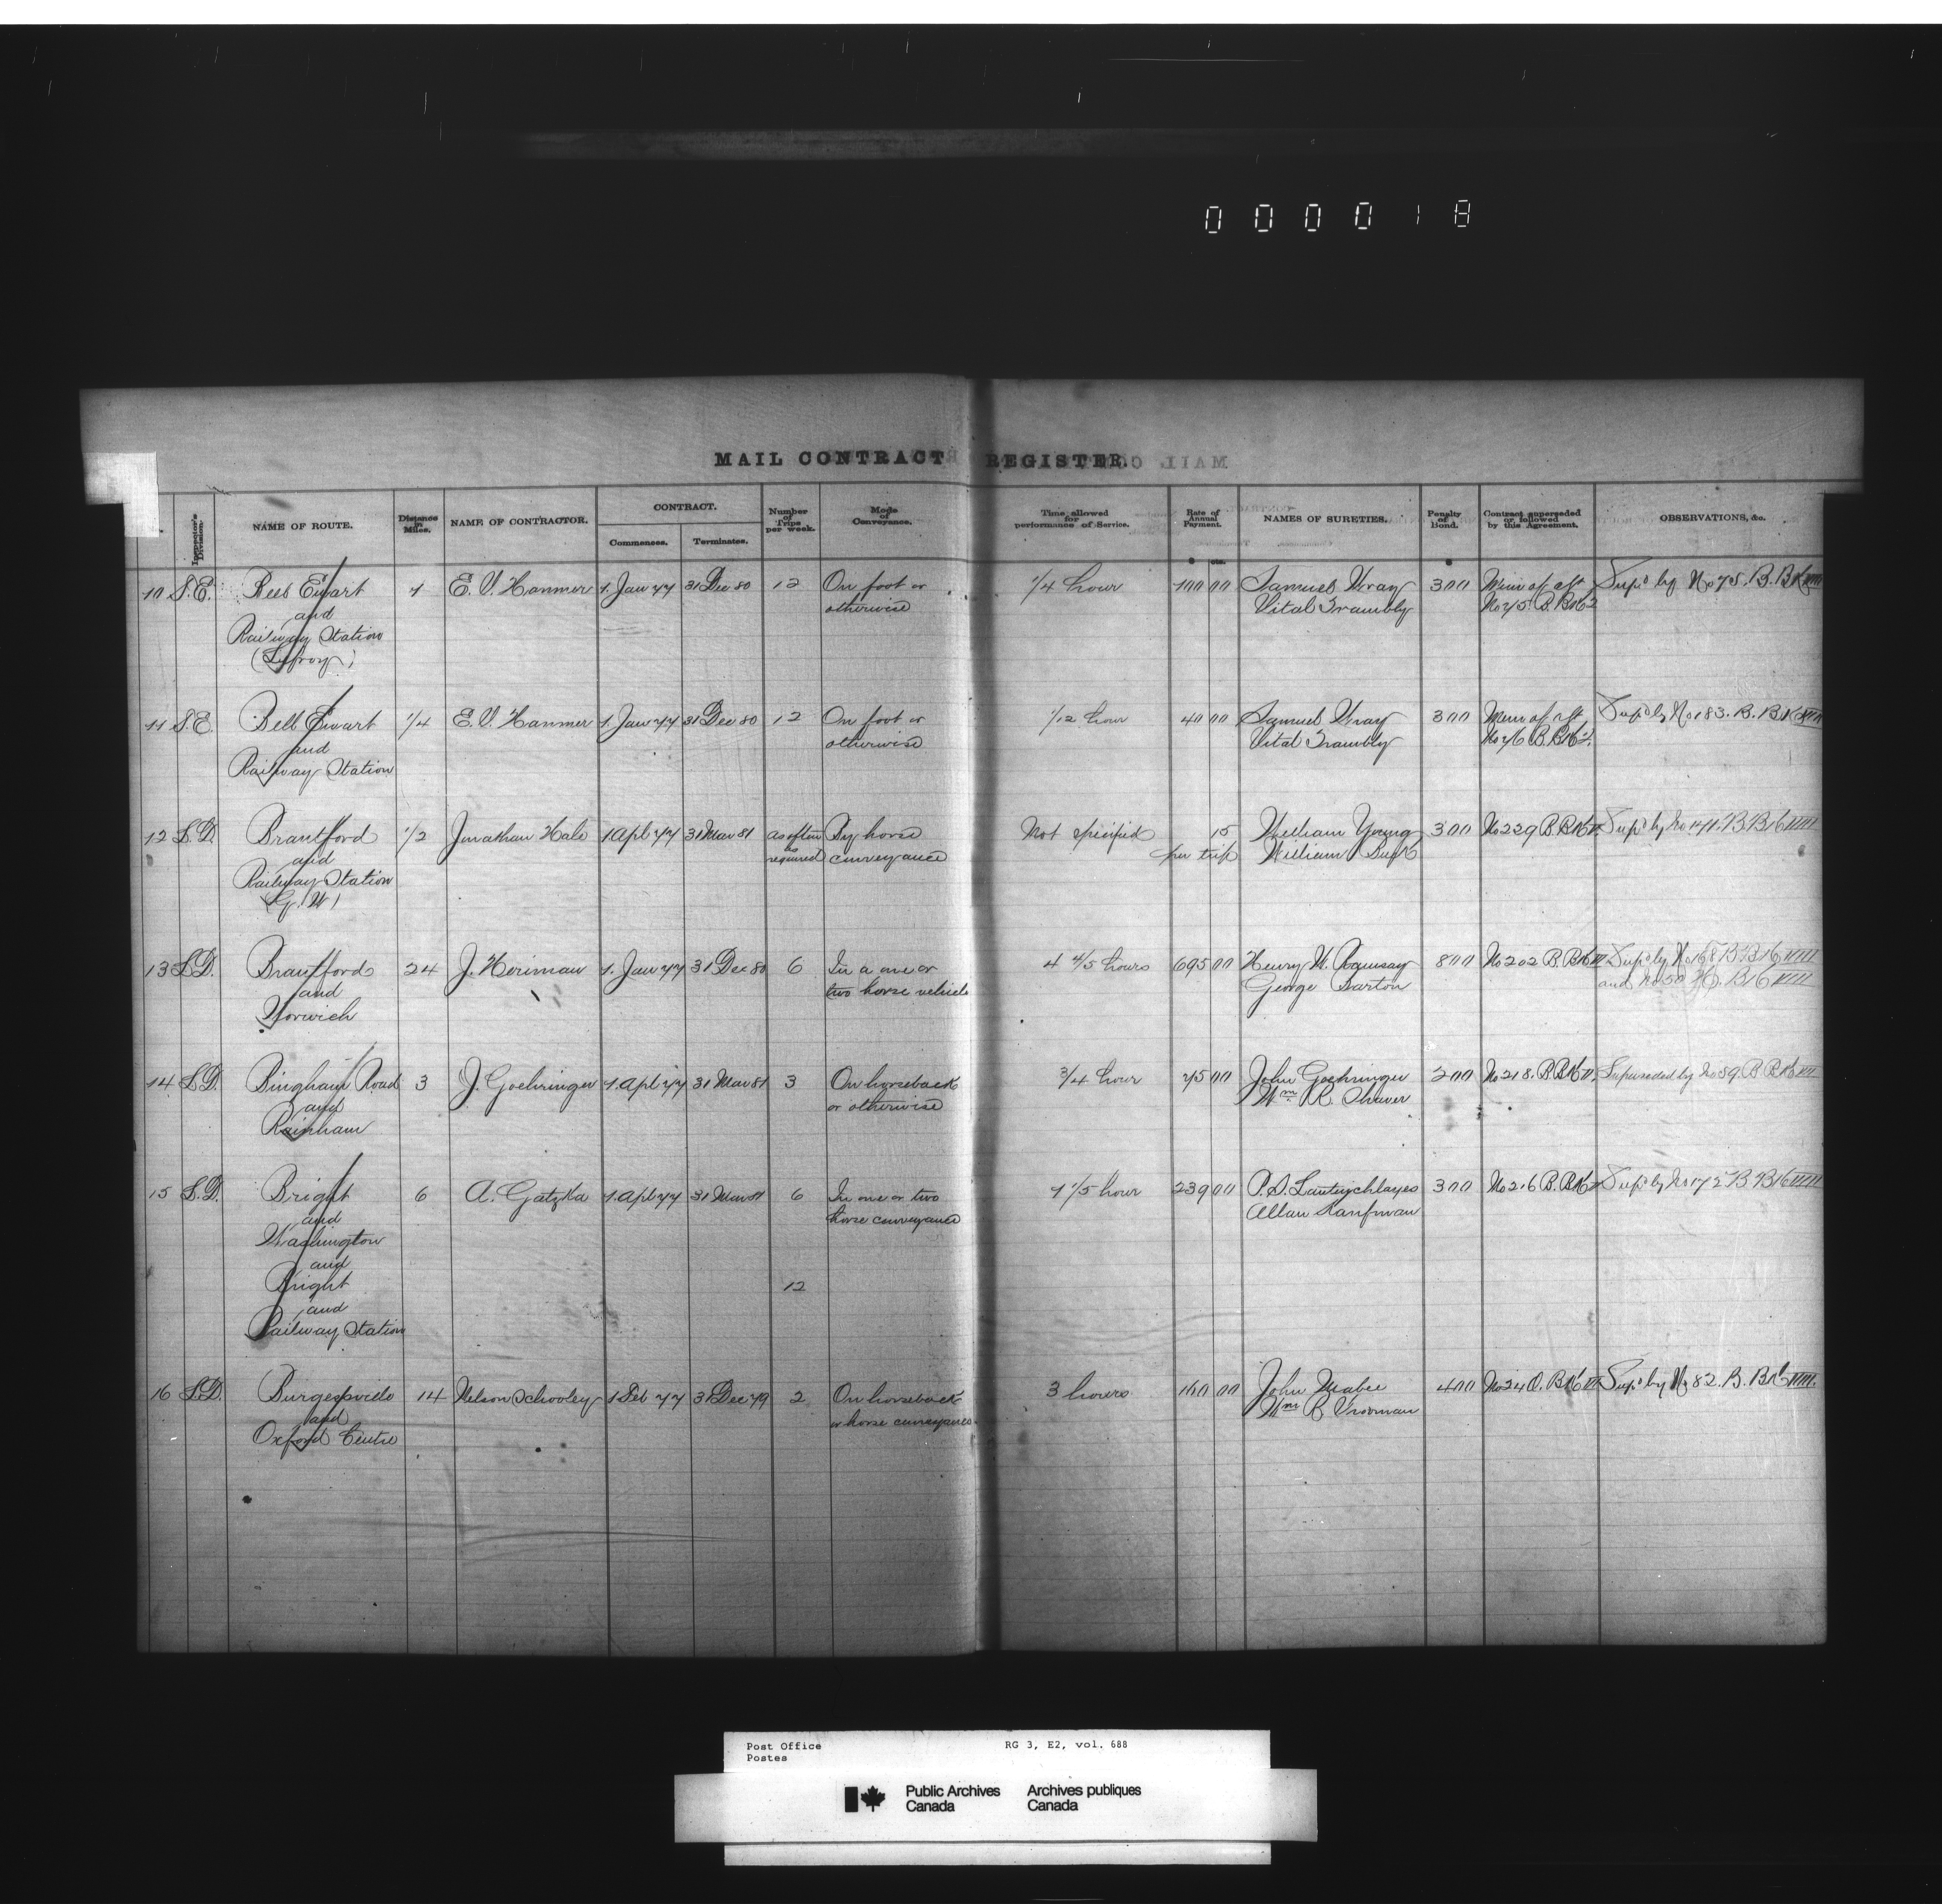 000018
MAIL CONTRACT REGISTER.
Inspector's Division.
NAME OF ROUTE.
Distance in Miles.
NAME OF CONTRACTOR.
CONTRACT.
Commences.
Terminates.
Number of Trips per week.
Mode of Conveyance.
Time allowed for performance of Service.
Rate of Annual Payment.
NAMES OF SURETIES.
Penalty of Bond.
Contract superseded or followed by this Agreement.
OBSERVATIONS, &c.
$ cts. $
10 S.E. Bell Ewart 1 E. V. Hanmer 1. Jan 77 31 Dec 80 12 On foot or 1/4 hour 100 00 Samuel Wray 300 Mem of aft Sup'd by No 75. B. BK
and otherwise Vital Trambly No 75 B. BK 2
Railway Station
(Lefroy)
11 S.E. Bell Ewart 1/4 E. V. Hanmer 1. Jan 77 31 Dec 80 12 On foot or 1/12 hour 40 00 Samuel Wray 300 Mem of aft Sup'd by No 183. B. BK
and otherwise Vital Trambly No 76 B. BK 2.
Railway Station
12 L.D. Brantford 1/2 Jonathan Hale 1 Apl 77 31 Mar 81 as often By horse Not specified 15 William Young 300 No 229 B. BK Sup'd by No
and as required conveyance per trip William Buck
Railway Station
(G. W)
13 L.D. Brantford 24 J. Heriman 1. Jan 77 31 Dec 80 6 In a one or 4 4/5 hours 695 00 Henry W. Ramsay 800 No 202 B. BK Sup'd by No 168 B. BK VIII
and two horse vehicle George Barton and No 50 BK VIII
Norwich
14 L.D. Bingham Road 3 J. Goehringer 1. Apl 77 31 Mar 81 3 On horseback 3/4 hour 75 00 John Goehringer 200 No 218. B. BK Superseded by No 89. B. BK
and or otherwise Wm R. Shaver
Rainham
15 L.D. Bright 6 A. Gatzka 1. Apl 77 31 Mar 81 6 In one or two 1 1/5 hour 239 00 300 No 216 B. BK Sup'd by No 172 B. BK VIII
and horse conveyance Allan Kaufman
Washington
and
Bright 12
and
Railway Station
16 L.D. Burgessville 14 Nelson Schooley 1 Feb 77 31 Dec 79 2 On horseback 3 hours 160 00 John Mabee 400 No 24 O. BK Sup'd by No 82. B. BK VIII.
and or horse conveyance Wm B. Vrooman
Oxford Centre
Post Office RG 3, E2, vol. 688
Postes
Public Archives Archives publiques
Canada Canada